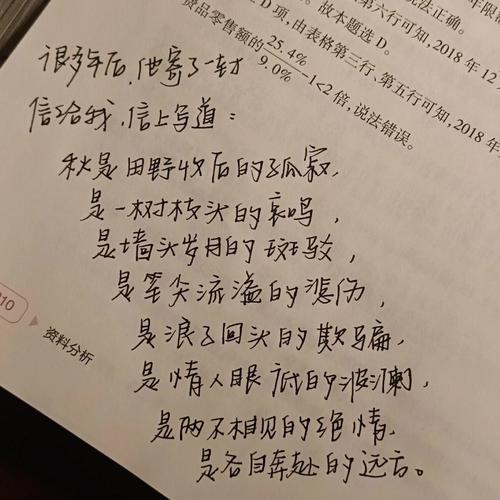 第六行可知，2018年12
D项，由表格第三行、第五行可知，2018年
故本题选D。
说法正确。
年限
货品零售额的25.4%/9.0%-1<2倍，说法错误。
很多年后，他寄了一封
信给我，信上写道：
秋是田野收后的孤寂，
是一树枝头的哀鸣，
是墙头岁月的斑驳，
是笔尖流溢的悲伤，
是浪子回头的欺骗，
是情人眼底的波澜，
是两不相见的绝情，
是各自奔赴的远方。
210
资料分析